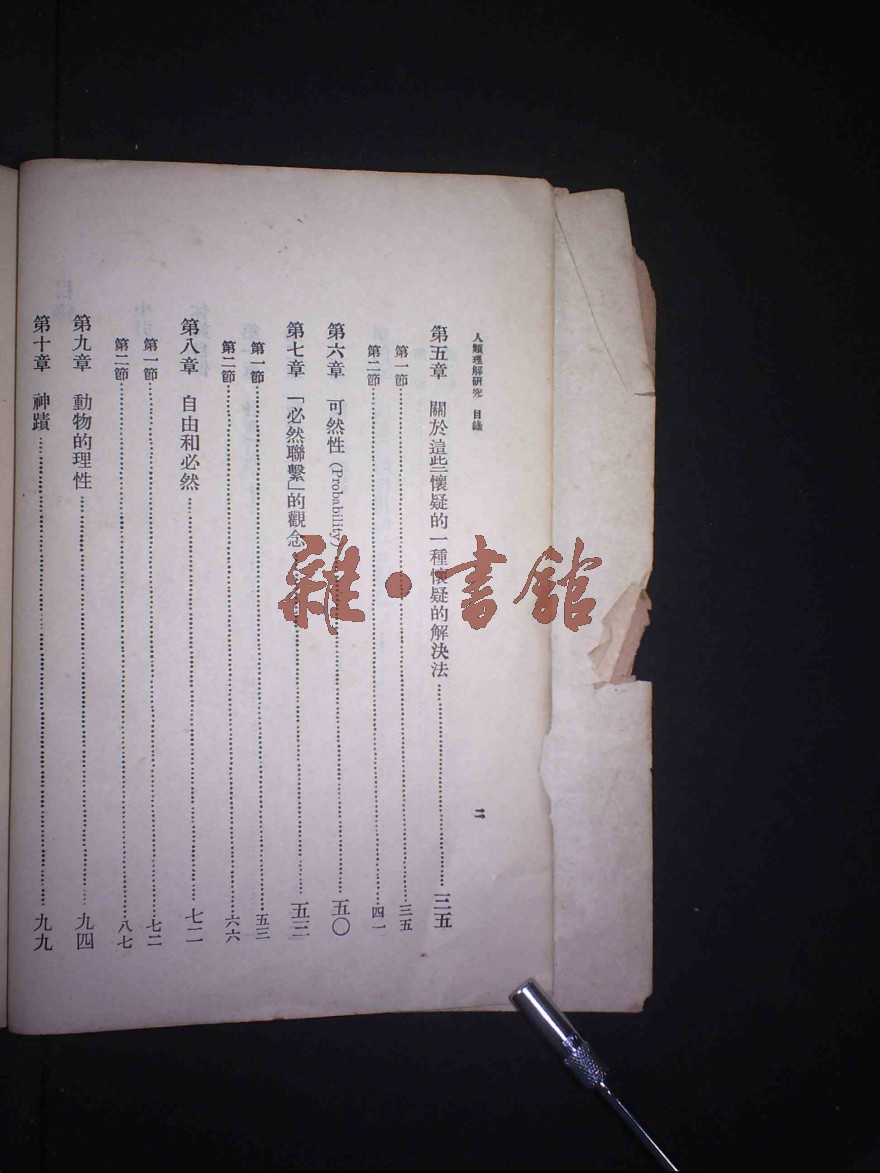 人類理解研究　目錄
二
第五章　關於這些懷疑的一種懷疑的解決法……三五
第一節……三五
第二節……四一
第六章　可然性 (Probability)……五〇
第七章　「必然聯繫」的觀念……五三
第一節……五三
第二節……六六
第八章　自由和必然……七二
第一節……七二
第二節……八七
第九章　動物的理性……九四
第十章　神蹟……九九
雜·書館